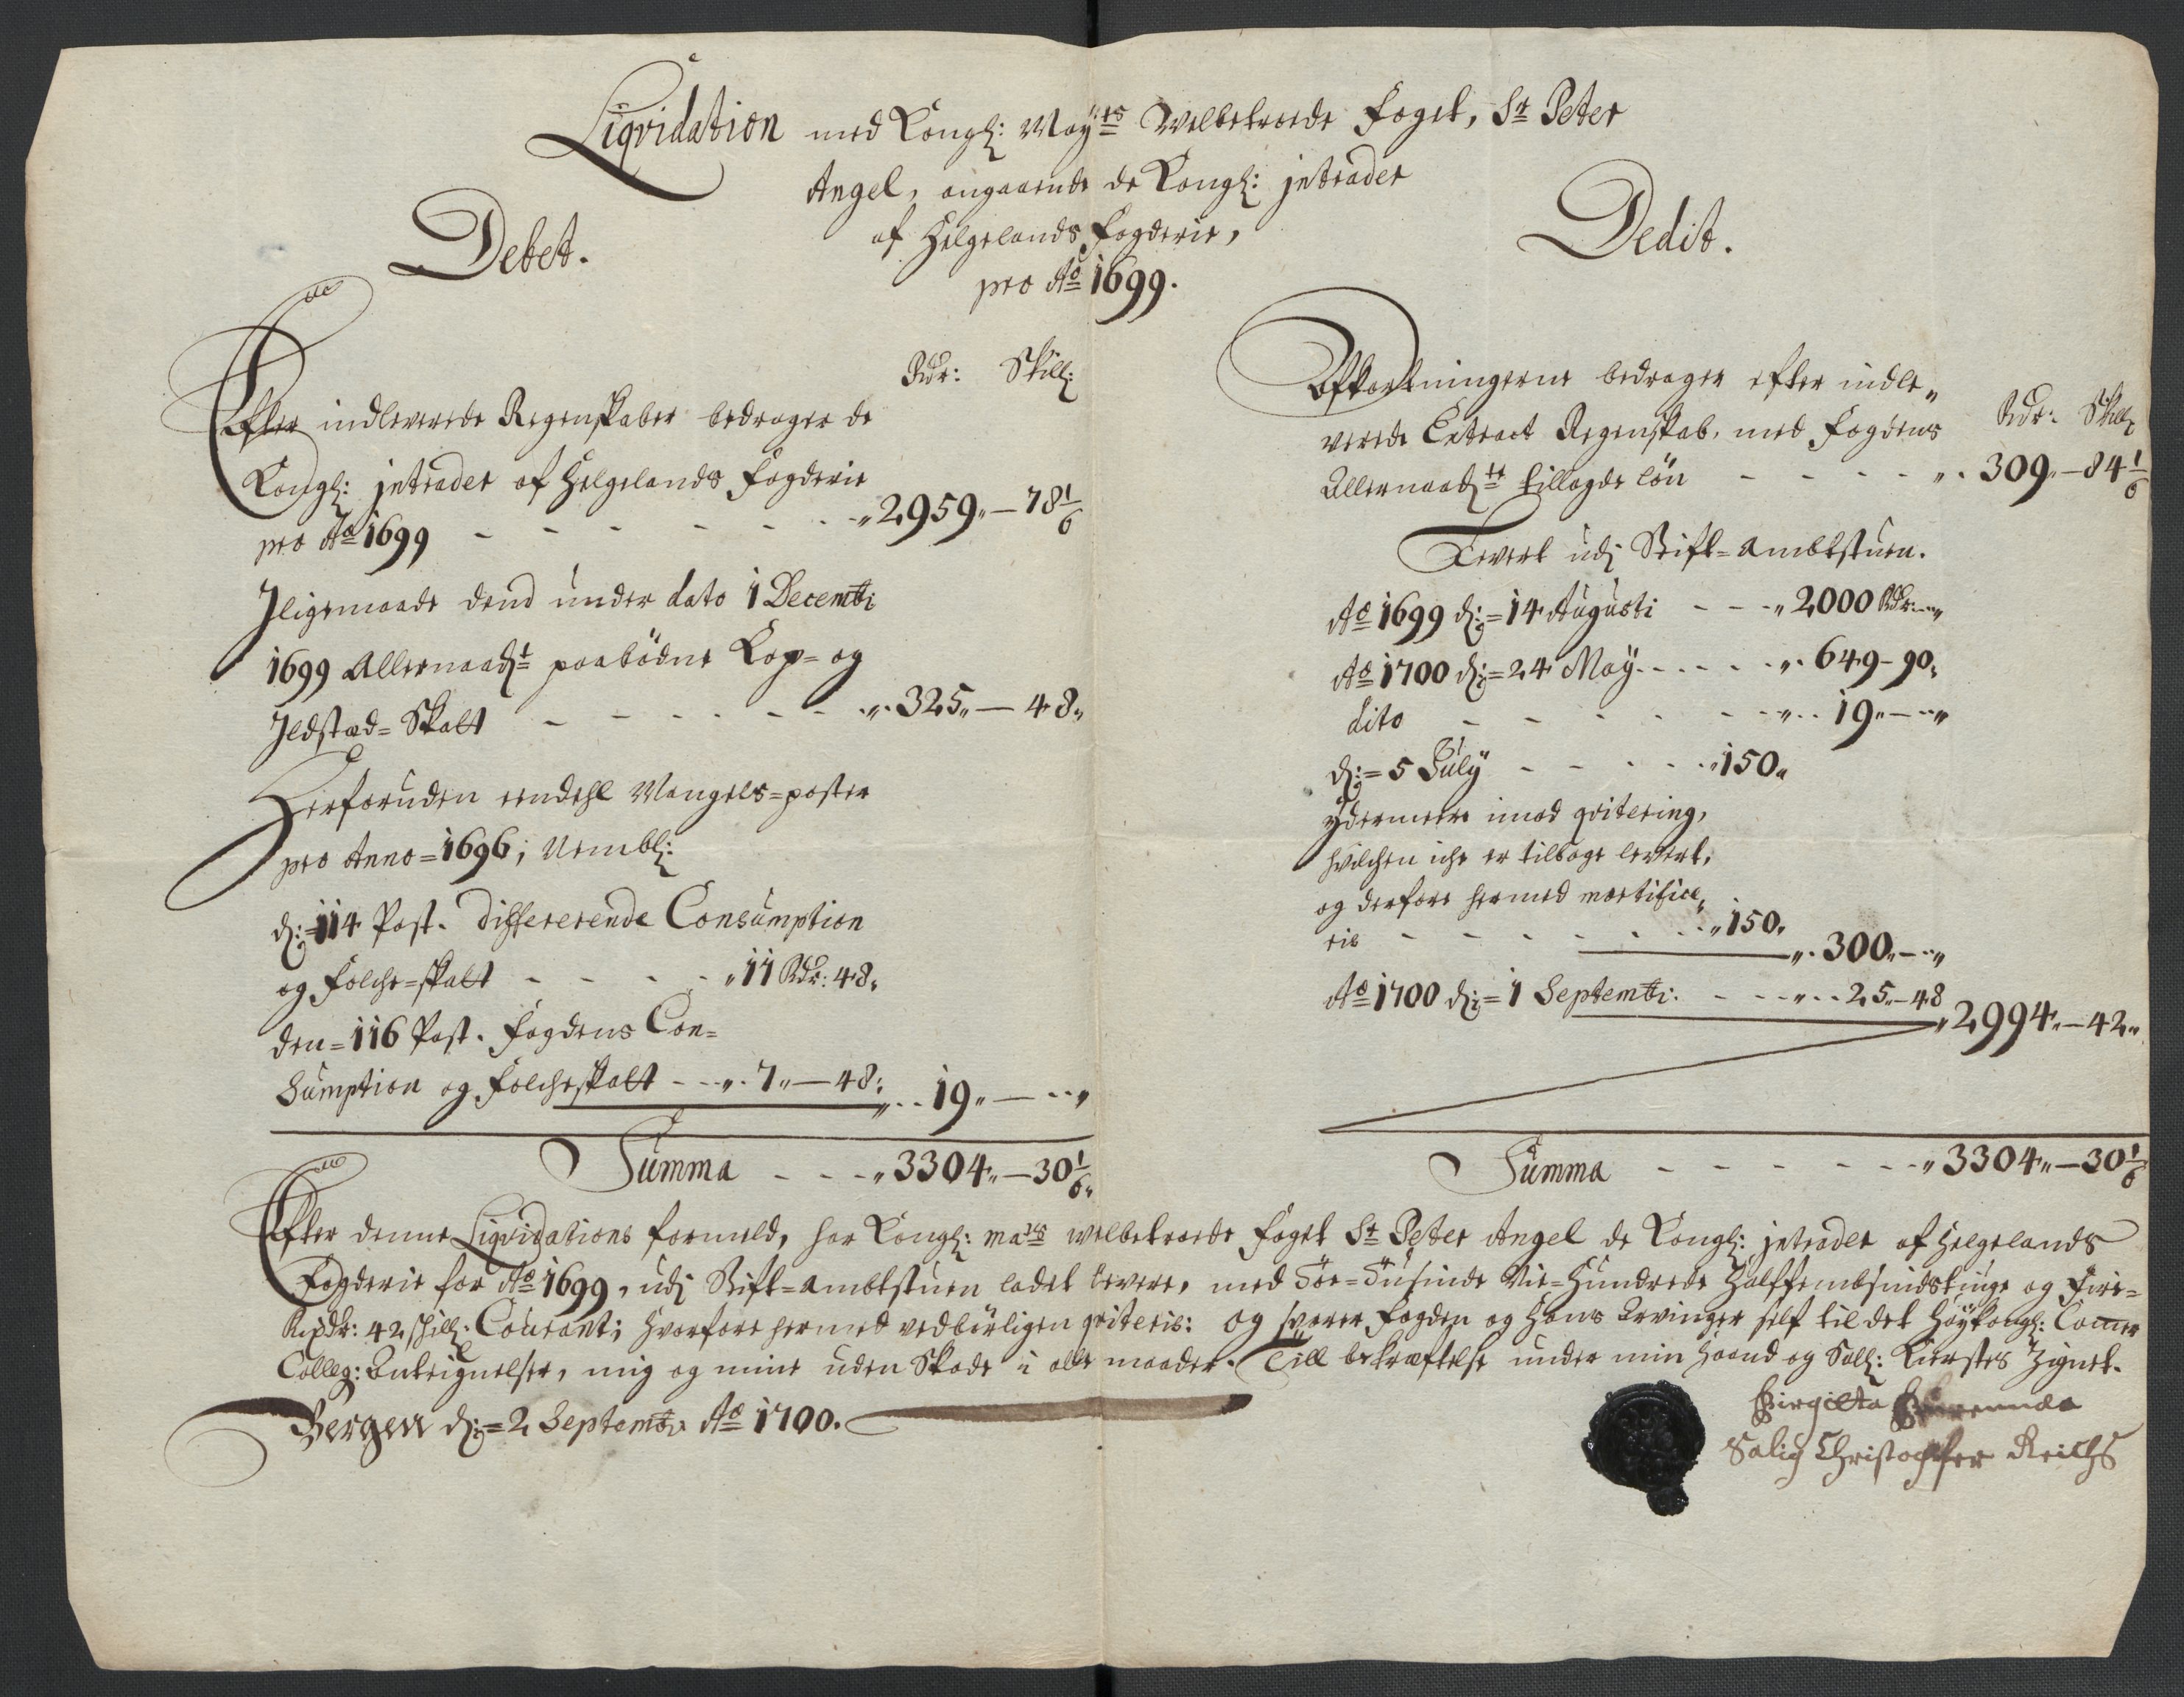 Liqvidation med Kongl: May:ts Welbetroede Foget, Sr Peter
Angel, angaaende de Kongl: jntrader
af Helgelands Fogderie,
pro Ao 1699.
Debet.
Rdr: Skill:
Efter indleverede Regenskaber bedrager de
Kongl: jntrader af Helgelands Fogderie
pro Ao 1699 - - - - - - - 2959 - 78 1/6
Jligemaade dend under dato 1 Decembr
1699 Allernaadst paabödne Kop- og
Jldsted-Skatt - - - - - - 325 - 48
Herforuden eendehl Mangels-poster
pro Anno=1696; Nembl:
d: 114 Post. differerende Consumption
og Folche-skatt - - - - 11 Rdr: 48
den=116 Post. Fogdens Con=
sumption og Folcheskatt - - - 7 - 48: 19 - -
Summa - - - 3304 - 30 1/6
Dedit.
Afkortningerne bedrager efter indle-
verede Extract Regenskab, med Fogdens
Rdr: Skill:
Allernaadst tillagde lön - - - - - 309 - 84 1/6
Levert udj Stift-ambtstuen.
Ao 1699 d:=14 Augusti - - - 2000 Rdr: -
Ao 1700 d:=24 May - - - - 649 - 90
dito - - - - - - 19 - -
d:=5 July - - - - 150
ydermeere imod qvitering,
hvilchen iche er tilbage levert,
og derfore hermed mortifice-
ris - - - - - - 150 300 - -
Ao 1700 d:=1 Septembr: - - - 25 - 48 2994 - 42
Summa - - - - - - 3304 - 30 1/6
Efter denne Liqvidations formeld, har Kongl: mats welbetroede Foget Sr Peter Angel de Kongl: jntrader af Helgelands
Fogderie for Ao 1699, udj Stift-ambtstuen ladet levere, med Toe-Tusinde Nie-Hundrede Halffembsindstiuge og Fire=
Rixdr: 42 skill: Courant; hvorfore hermed vedbörligen qviteris: og svarer Fogden og Hans Arvinger self til det Höykongl: Camer
Colleg: Antegnelser, mig og mine uden Skade i alle maader. Till bekræftelse under min Haand og Sall: Kierstes Zignet.
Bergen d:=2 Septembr Ao 1700.
Birgitta
Salig Christoffer Reichs